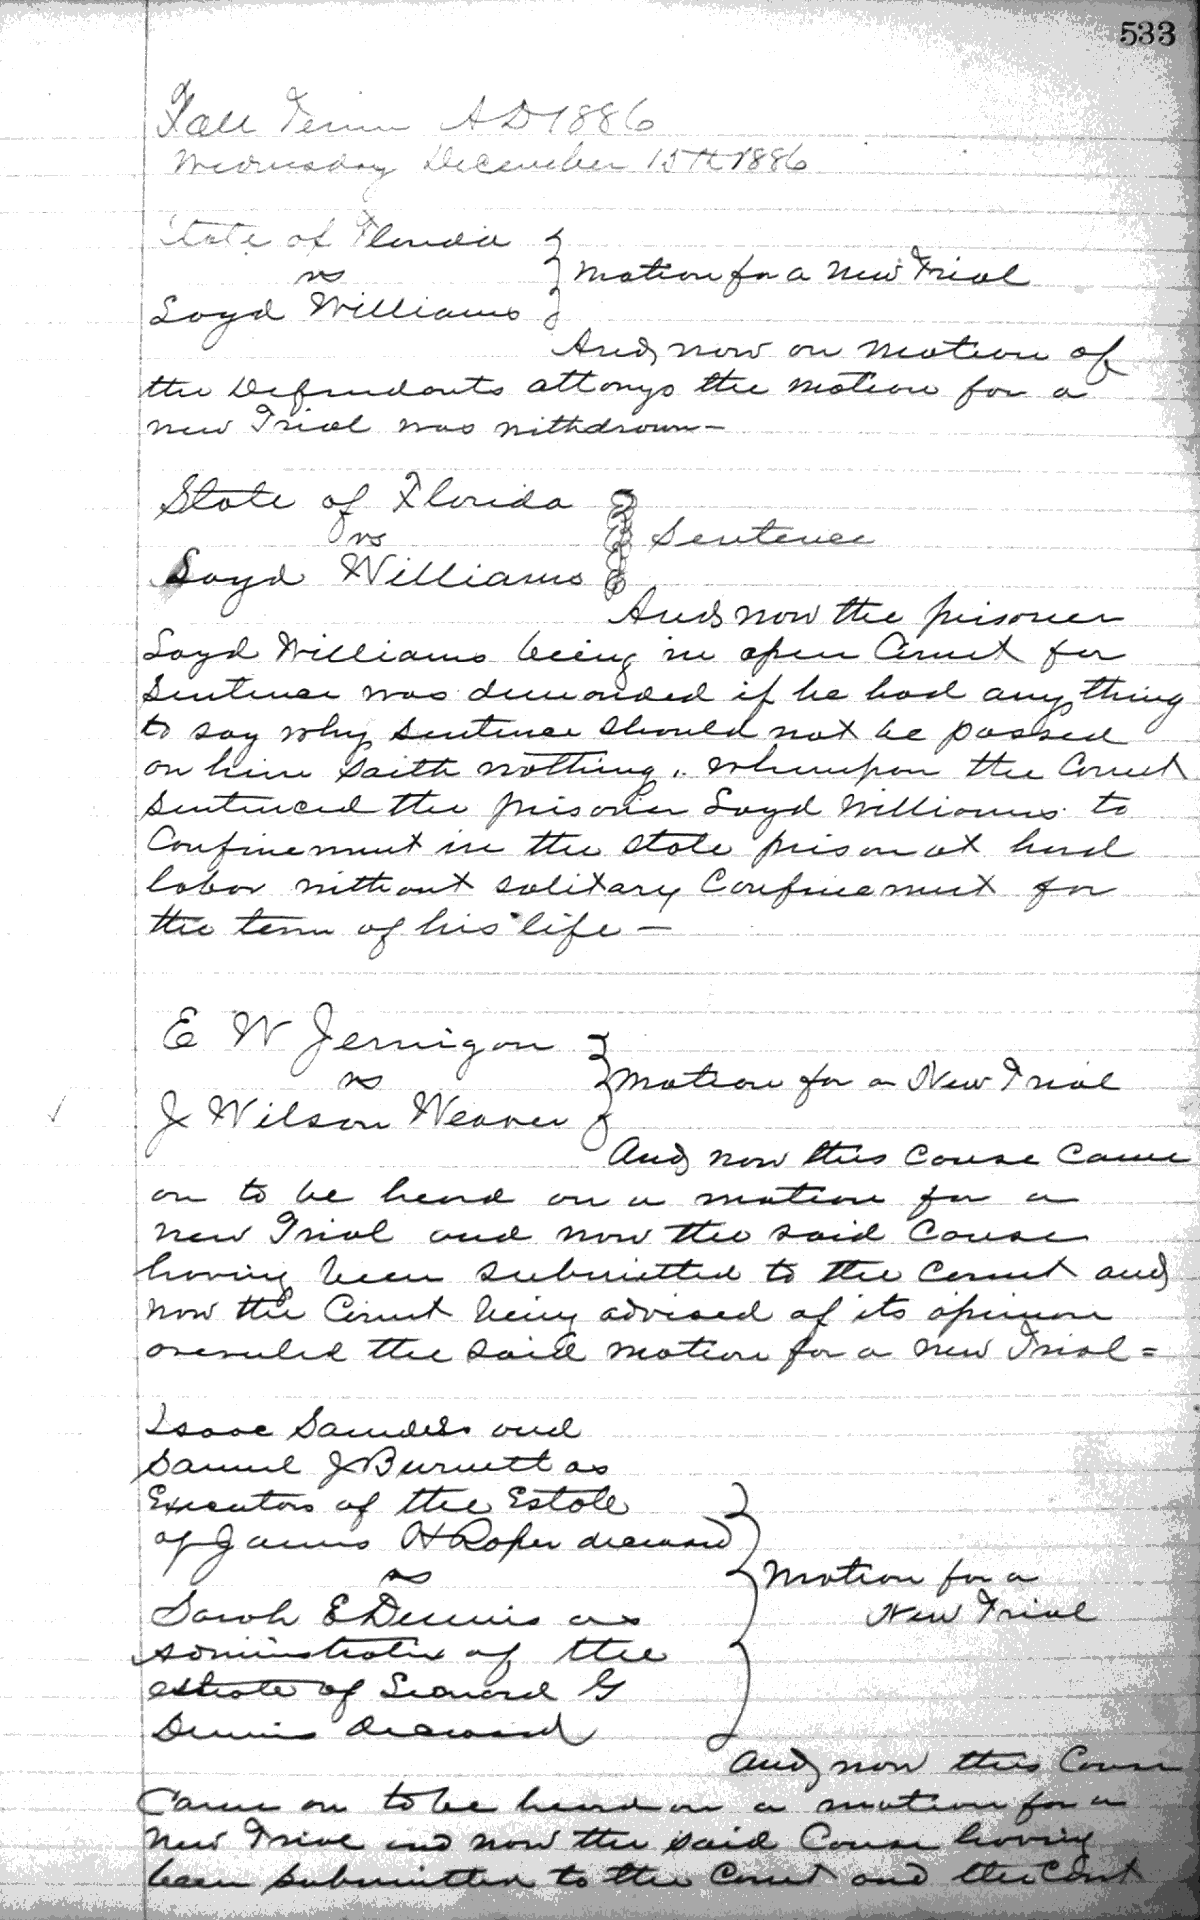 533
Fall Term AD 1886
Wednesday December 15th 1886
State of Florida
vs
Loyd Williams
Motion for a New Trial
And now on motion of
the Defendants attonys the motion for a
new Trial was withdrawn —
State of Florida
vs
Loyd Williams
Sentence
And now the prisoner
Loyd Williams being in open Court for
Sentence was demanded if he had any thing
to say why Sentence should not be passed
on him saith nothing. Whereupon the Court
Sentenced the prisoner Loyd Williams to
Confinement in the State prison at hard
labor without solitary Confinement for
the term of his life —
E W Jernigan
vs
J Wilson Weaver
Motion for a New Trial
And now this Cause Came
on to be heard on a motion for a
new Trial and now the said Cause
having been submitted to the Court and
now the Court being advised of its opinion
overruled the said motion for a new Trial =
Isaac Saunders and
Samuel J Burnett as
Executors of the Estate
of James H Roper deceased
vs
Sarah E Dennis as
administratrix of the
estate of Leonard G
Dennis deceased
Motion for a
New Trial
And now this Cause
Came on to be heard on a motion for a
New Trial and now the said Cause having
been submitted to the Court and the Court